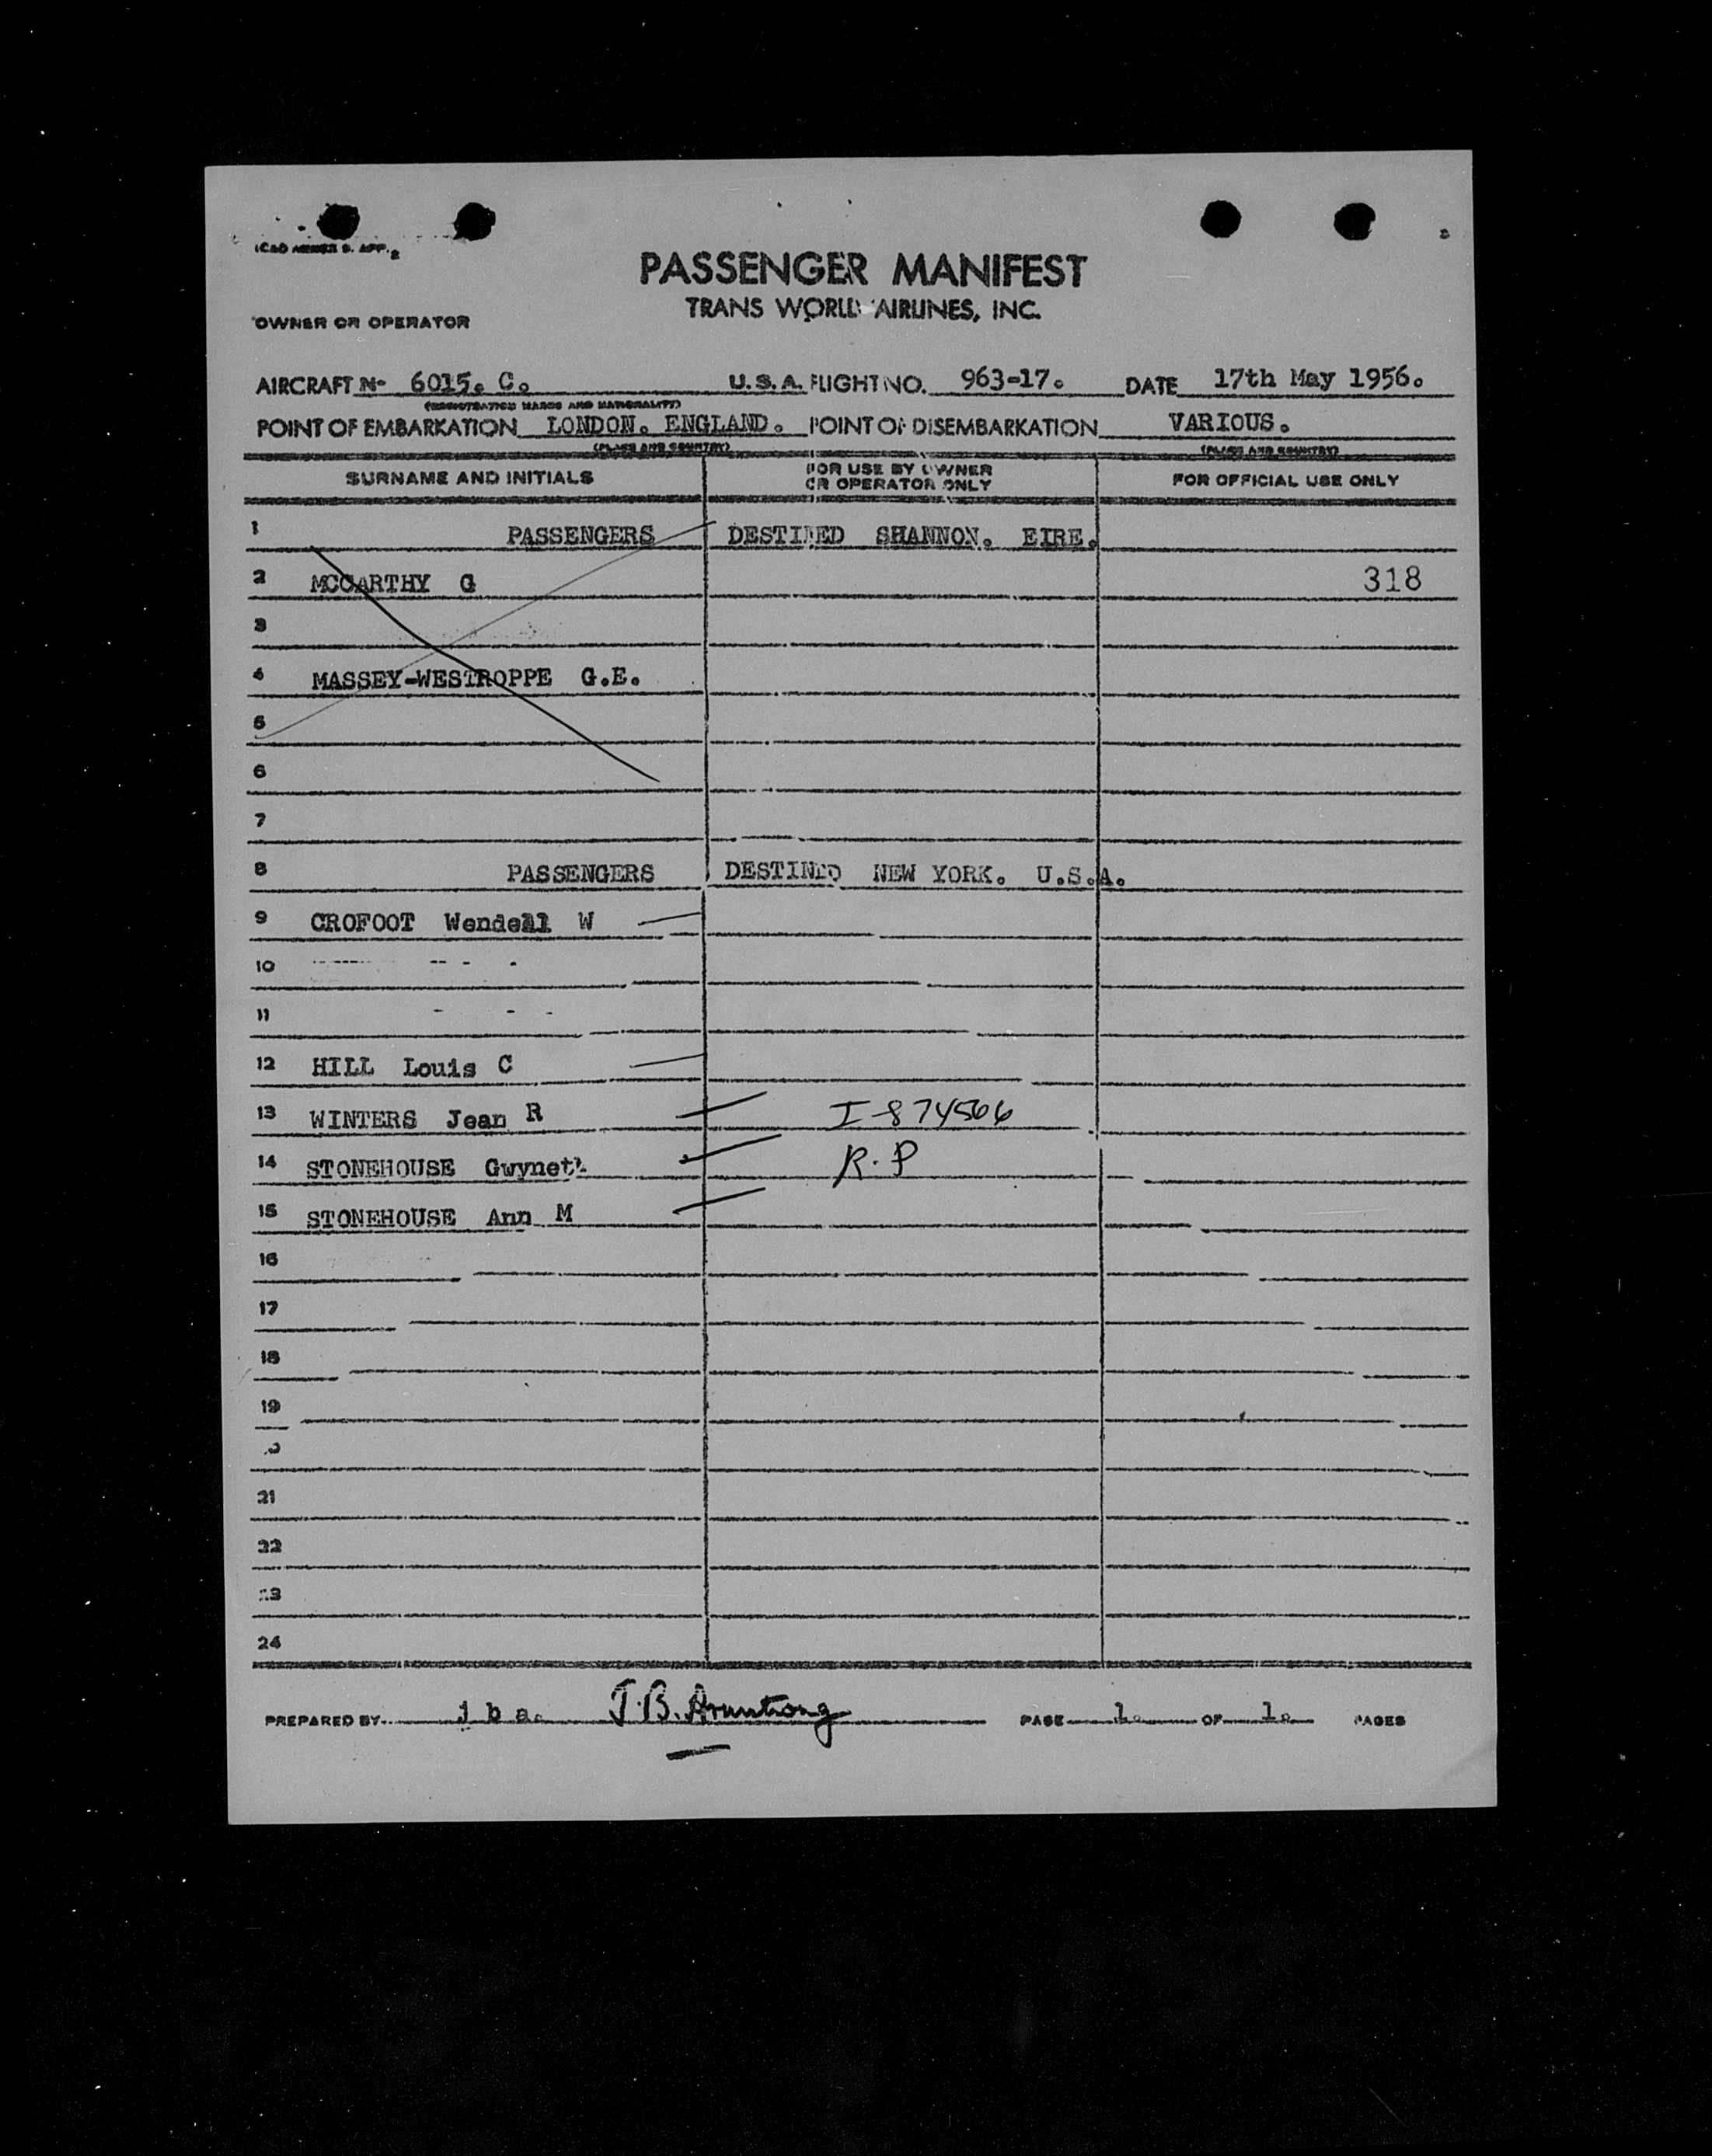 ICAO ANNEX 9. APP. 2
PASSENGER MANIFEST
TRANS WORLD AIRLINES, INC.
OWNER OR OPERATOR
AIRCRAFT N- 6015. C. U.S.A. FLIGHT NO. 963-17. DATE 17th May 1956.
(REGISTRATION MARKS AND NATIONALITY)
POINT OF EMBARKATION LONDON. ENGLAND. POINT OF DISEMBARKATION VARIOUS.
(PLACE AND COUNTRY) (PLACE AND COUNTRY)
SURNAME AND INITIALS FOR USE BY OWNER OR OPERATOR ONLY FOR OFFICIAL USE ONLY
1 PASSENGERS DESTINED SHANNON. EIRE.
2 MCCARTHY G 318
3
4 MASSEY-WESTROPPE G.E.
5
6
7
8 PASSENGERS DESTINED NEW YORK. U.S.A.
9 CROFOOT Wendell W
10
11
12 HILL Louis C
13 WINTERS Jean R I-874566
14 STONEHOUSE Gwyneth R.P
15 STONEHOUSE Ann M
16
17
18
19
21
22
23
24
PREPARED BY j b a. J.B. Armstrong PAGE 1. OF 1. PAGES